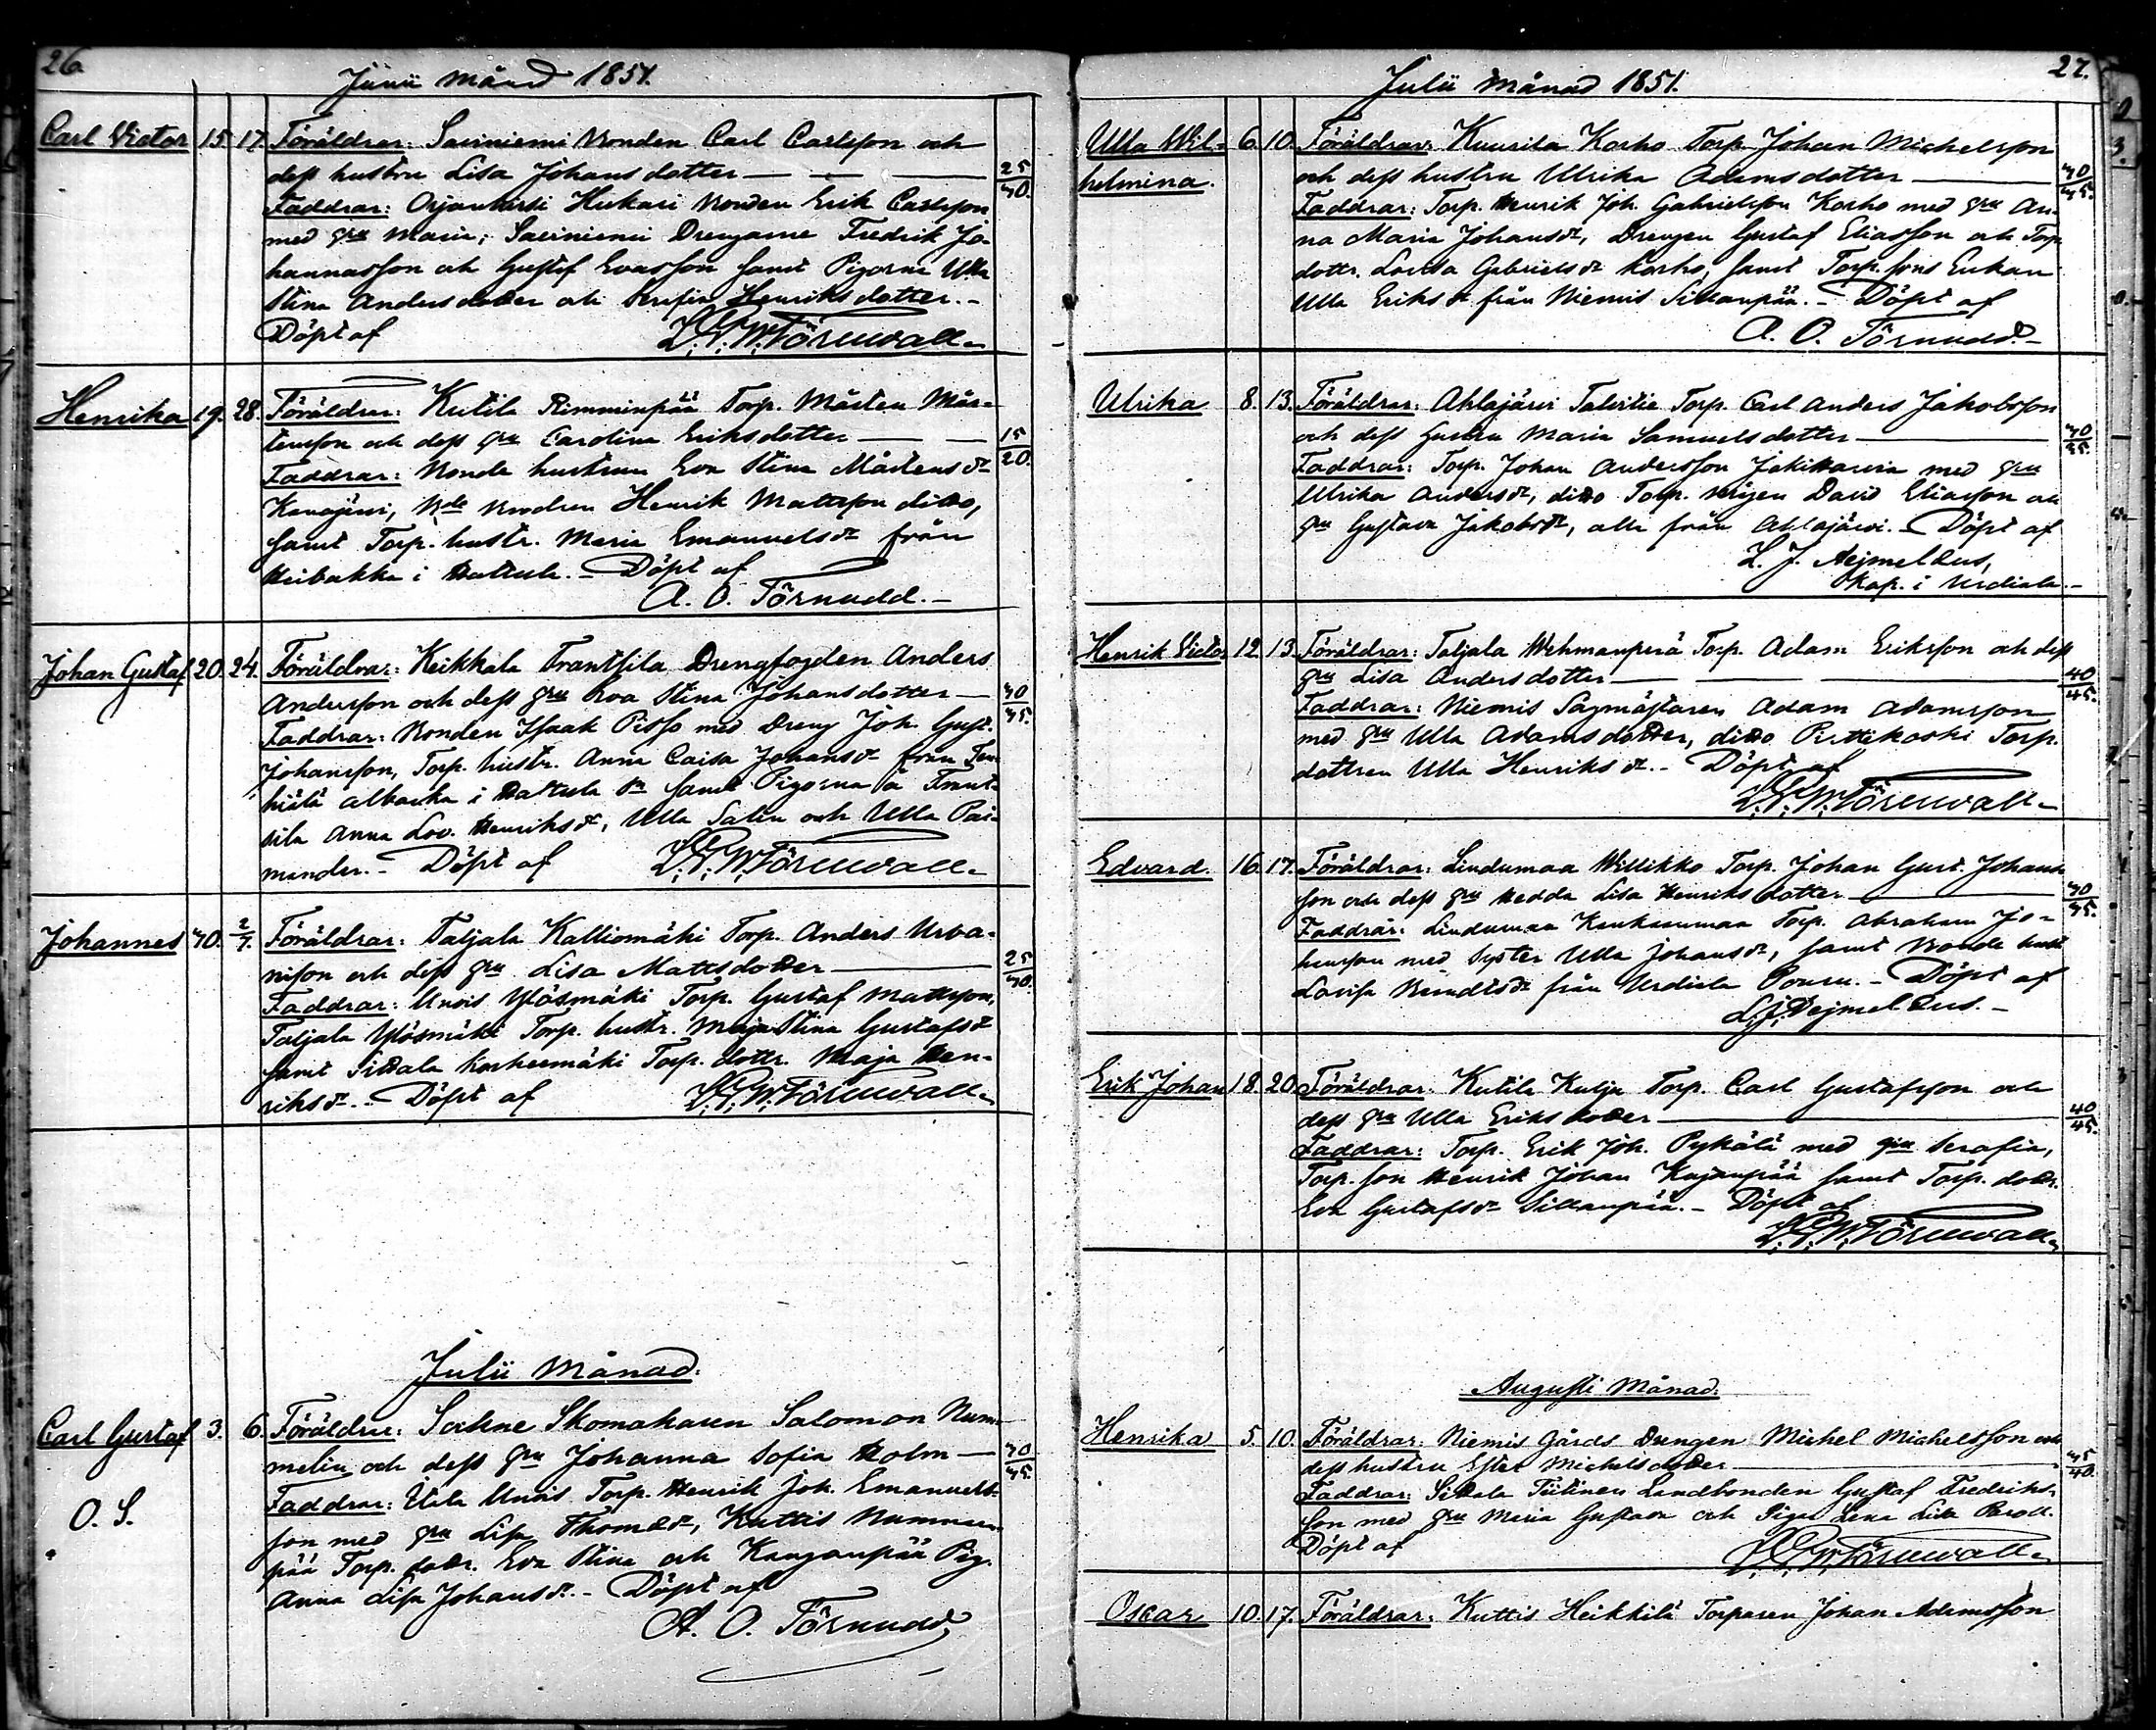 26.
Junii Månad 1851.
Carl Victor 15. 17. Föräldrar: Saviniemi Bonden Carl Carlsson och
dess hustru Lisa Johansdotter 25/30.
Faddrar: Hukari Bonden Erik Carlsson
med hru Maria; Saviniemi Drengarne Fredrik Jo-
hannasson och Gustaf Evasson samt Pigorna Ulla
Stina Andersdotter och Serafia Henriksdotter.-
Döpt af Törnwall
Henrika 19. 28. Föräldrar: Kutila Rimminpää Torp. Mårten Mår-
tensson och dess hru Carolina Eriksdotter 15/20.
Faddrar: Bonde hustrun Eva Stina Mårtensdr
Kanajärvi, Henrik Mattsson ditto,
samt Torp. hustr. Maria Emanuelsdr från
i Hattula.- Döpt af
A. O. Törnudd.-
Johan Gustaf 20. 24. Föräldrar: Keikkala Frantsila Drengfogden Anders
Andersson och dess hru Eva Stina Johansdotter 30/35.
Faddrar: Bonden Isaak Pisso med Dreng Joh. Gust.
Johansson, Torp. hustr. Anna Caisa Johansdr från
i Hattula sn samt Pigorna å Frant-
sila Anna Lov. Henriksdr, Ulla Salin och Ulla Pai-
mander.- Döpt af Törnwall
Johannes 30. 2/7. Föräldrar: Taljala Kalliomäki Torp. Anders Urba-
nisson och dess hru Lisa Mattsdotter 25/30.
Faddrar: Unois Ylösmäki Torp. Gustaf Mattsson,
Taljala Ylösmäki Torp. hustr. Maja Stina Gustafsdr
samt Sittala Korkeemäki Torp. dottr. Maja Hen-
riksdr.- Döpt af Törnwall
Julii Månad.
Carl Gustaf 3. 6. Föräldrar: Sockne Skomakaren Salomon Num-
melin och dess hru Johanna Sofia Holm 30/35.
O. S.
Faddrar: Unois Torp. Henrik Joh. Emanuels-
son med hru Lisa Thomædr, Kuttis Nummen-
pää Torp. dottr. Eva Stina och Kanganpää Pig.
Anna Lisa Johansdr.- Döpt af
A. O. Törnudd
27.
Julii Månad 1851.
Ulla Wil-
helmina. 6. 10. Föräldrar: Kuurila Korho Torp. Johan Michelsson
och dess hustru Ulrika Adamsdotter 30/35.
Faddrar: Torp. Henrik Joh. Gabrielsson Korho med hru An-
na Maria Johansdr, Drengen Gustaf Eliasson och Torp.
dottr. Lovisa Gabrielsdr Korho, samt Torp. sons Enkan
Ulla Eriksdr från Niemis Sillanpää.- Döpt af
A. O. Törnudd.-
Ulrika 8. 13. Föräldrar: Ahlajärvi Talvitie Torp. Carl Anders Jakobsson
och dess hustru Maria Samuelsdotter 30/35.
Faddrar: Torp. Johan Andersson med hru
Ulrika Andersdr, ditto Torp. mågen David Eliasson och
hru Gustava Jakobsdr, alla från Ahlajärvi.- Döpt af
L. J. Aejmelæus,
Kap. i Urdiala.-
Henrik Victor 12. 13. Föräldrar: Taljala Wehmanperä Torp. Adam Eriksson och dess
hru Lisa Andersdotter 40/45.
Faddrar: Niemis Sågmästaren Adam Adamsson
med hru Ulla Adamsdotter, ditto Perttikoski Torp.
dottren Ulla Henriksdr.- Döpt af
Törnwall
Edvard. 16. 17. Föräldrar: Lindumaa Willikko Torp. Johan Gust. Johans-
son och dess hru Hedda Lisa Henriksdotter 30/35.
Faddrar: Lindumaa Torp. Abraham Jo-
hansson med syster Ulla Johansdr, samt Bonde hust.
Lovisa Berndtsdr från Urdiala .- Döpt af
L. J. Aejmelæus.-
Erik Johan 18. 20. Föräldrar: Kutila Kulja Torp. Carl Gustafsson och
dess hru Ulla Eriksdotter 40/45.
Faddrar: Torp. Erik Joh. Pykälä med hru Serafia,
Torp. son Henrik Johan Kujanpää samt Torp. dottr.
Eva Gustafsdr Sillanpää.- Döpt af
Törnwall
Augusti Månad.
Henrika 5. 10. Föräldrar: Niemis Gårds Drengen Michel Michelsson och
dess hustru Ester Michelsdotter 35/40.
Faddrar: Sittala Tiitinen Landbonden Gustaf Fredriks-
son med hru Maria Gustava och Pigan Lena Lisa Paroll.
Döpt af Törnwall
Oscar 10. 17. Föräldrar: Kuttis Heikkilä Torparen Johan Adamsson